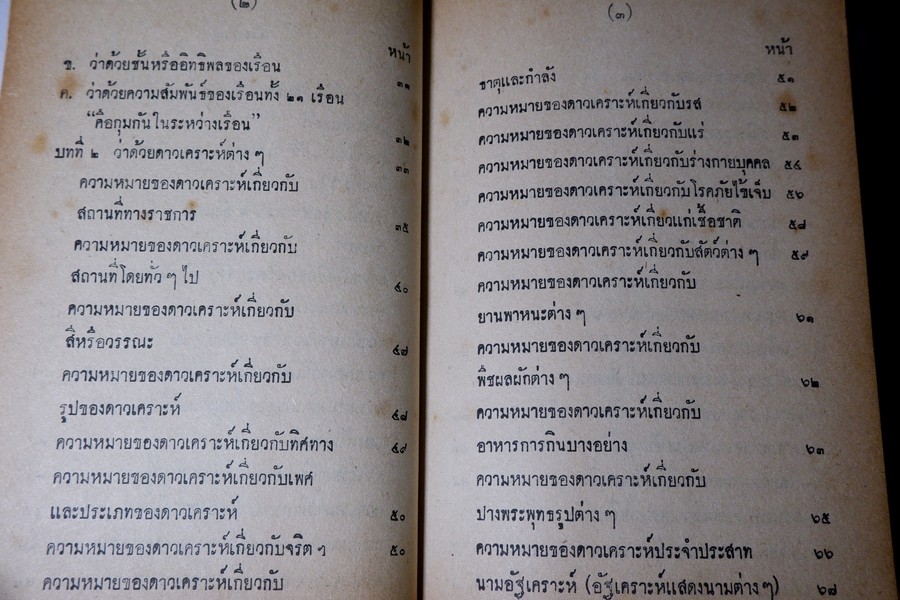 (๒)
หน้า
ข. ว่าด้วยชั้นหรืออิทธิพลของเรือน ๓๑
ค. ว่าด้วยความสัมพันธ์ของเรือนทั้ง ๒๑ เรือน
“คือกุมกันในระหว่างเรือน” ๓๒
บทที่ ๒ ว่าด้วยดาวเคราะห์ต่าง ๆ ๓๓
ความหมายของดาวเคราะห์เกี่ยวกับ
สถานที่ทางราชการ ๓๕
ความหมายของดาวเคราะห์เกี่ยวกับ
สถานที่โดยทั่ว ๆ ไป ๔๐
ความหมายของดาวเคราะห์เกี่ยวกับ
สีหรือวรรณะ ๔๗
ความหมายของดาวเคราะห์เกี่ยวกับ
รูปของดาวเคราะห์ ๔๘
ความหมายของดาวเคราะห์เกี่ยวกับทิศทาง ๔๙
ความหมายของดาวเคราะห์เกี่ยวกับเพศ
และประเภทของดาวเคราะห์ ๕๐
ความหมายของดาวเคราะห์เกี่ยวกับจริต ๆ ๕๐
ความหมายของดาวเคราะห์เกี่ยวกับ
(๓)
หน้า
ธาตุและกำลัง ๕๑
ความหมายของดาวเคราะห์เกี่ยวกับรส ๕๒
ความหมายของดาวเคราะห์เกี่ยวกับแร่ ๕๓
ความหมายของดาวเคราะห์เกี่ยวกับร่างกายบุคคล ๕๔
ความหมายของดาวเคราะห์เกี่ยวกับโรคภัยไข้เจ็บ ๕๖
ความหมายของดาวเคราะห์เกี่ยวแก่เชื้อชาติ ๕๘
ความหมายของดาวเคราะห์เกี่ยวกับสัตว์ต่าง ๆ ๕๙
ความหมายของดาวเคราะห์เกี่ยวกับ
ยานพาหนะต่าง ๆ ๖๑
ความหมายของดาวเคราะห์เกี่ยวกับ
พืชผลผักต่าง ๆ ๖๒
ความหมายของดาวเคราะห์เกี่ยวกับ
อาหารการกินบางอย่าง ๖๓
ความหมายของดาวเคราะห์เกี่ยวกับ
ปางพระพุทธรูปต่าง ๆ ๖๕
ความหมายของดาวเคราะห์ประจำประสาท ๖๖
นามอัฐเคราะห์ (อัฐเคราะห์แสดงนามต่าง ๆ) ๖๘